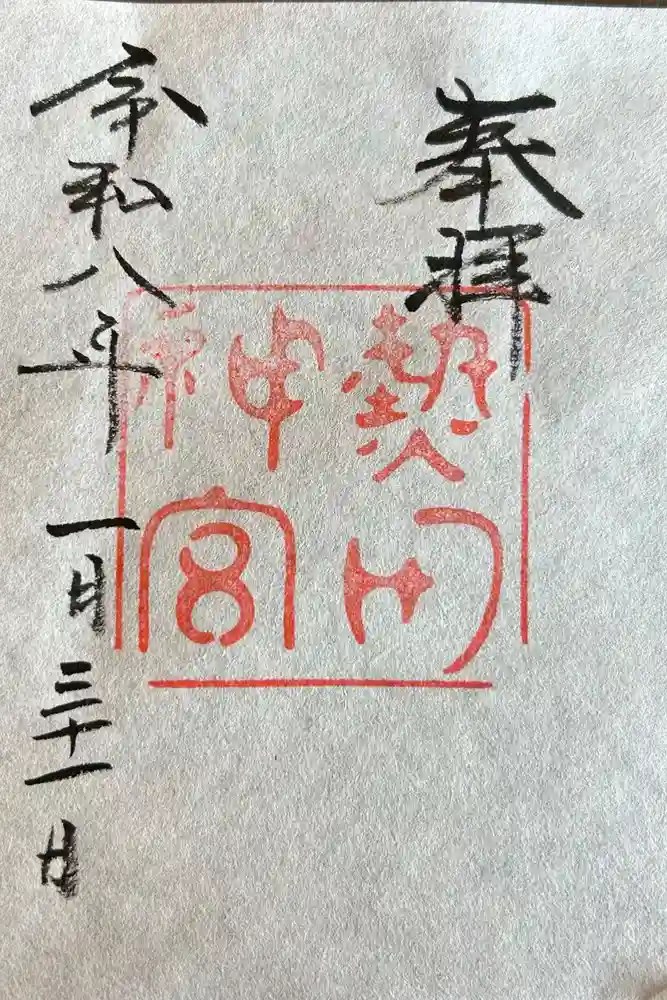 奉拝
熱田
神宮
令和八年 一月三十一日